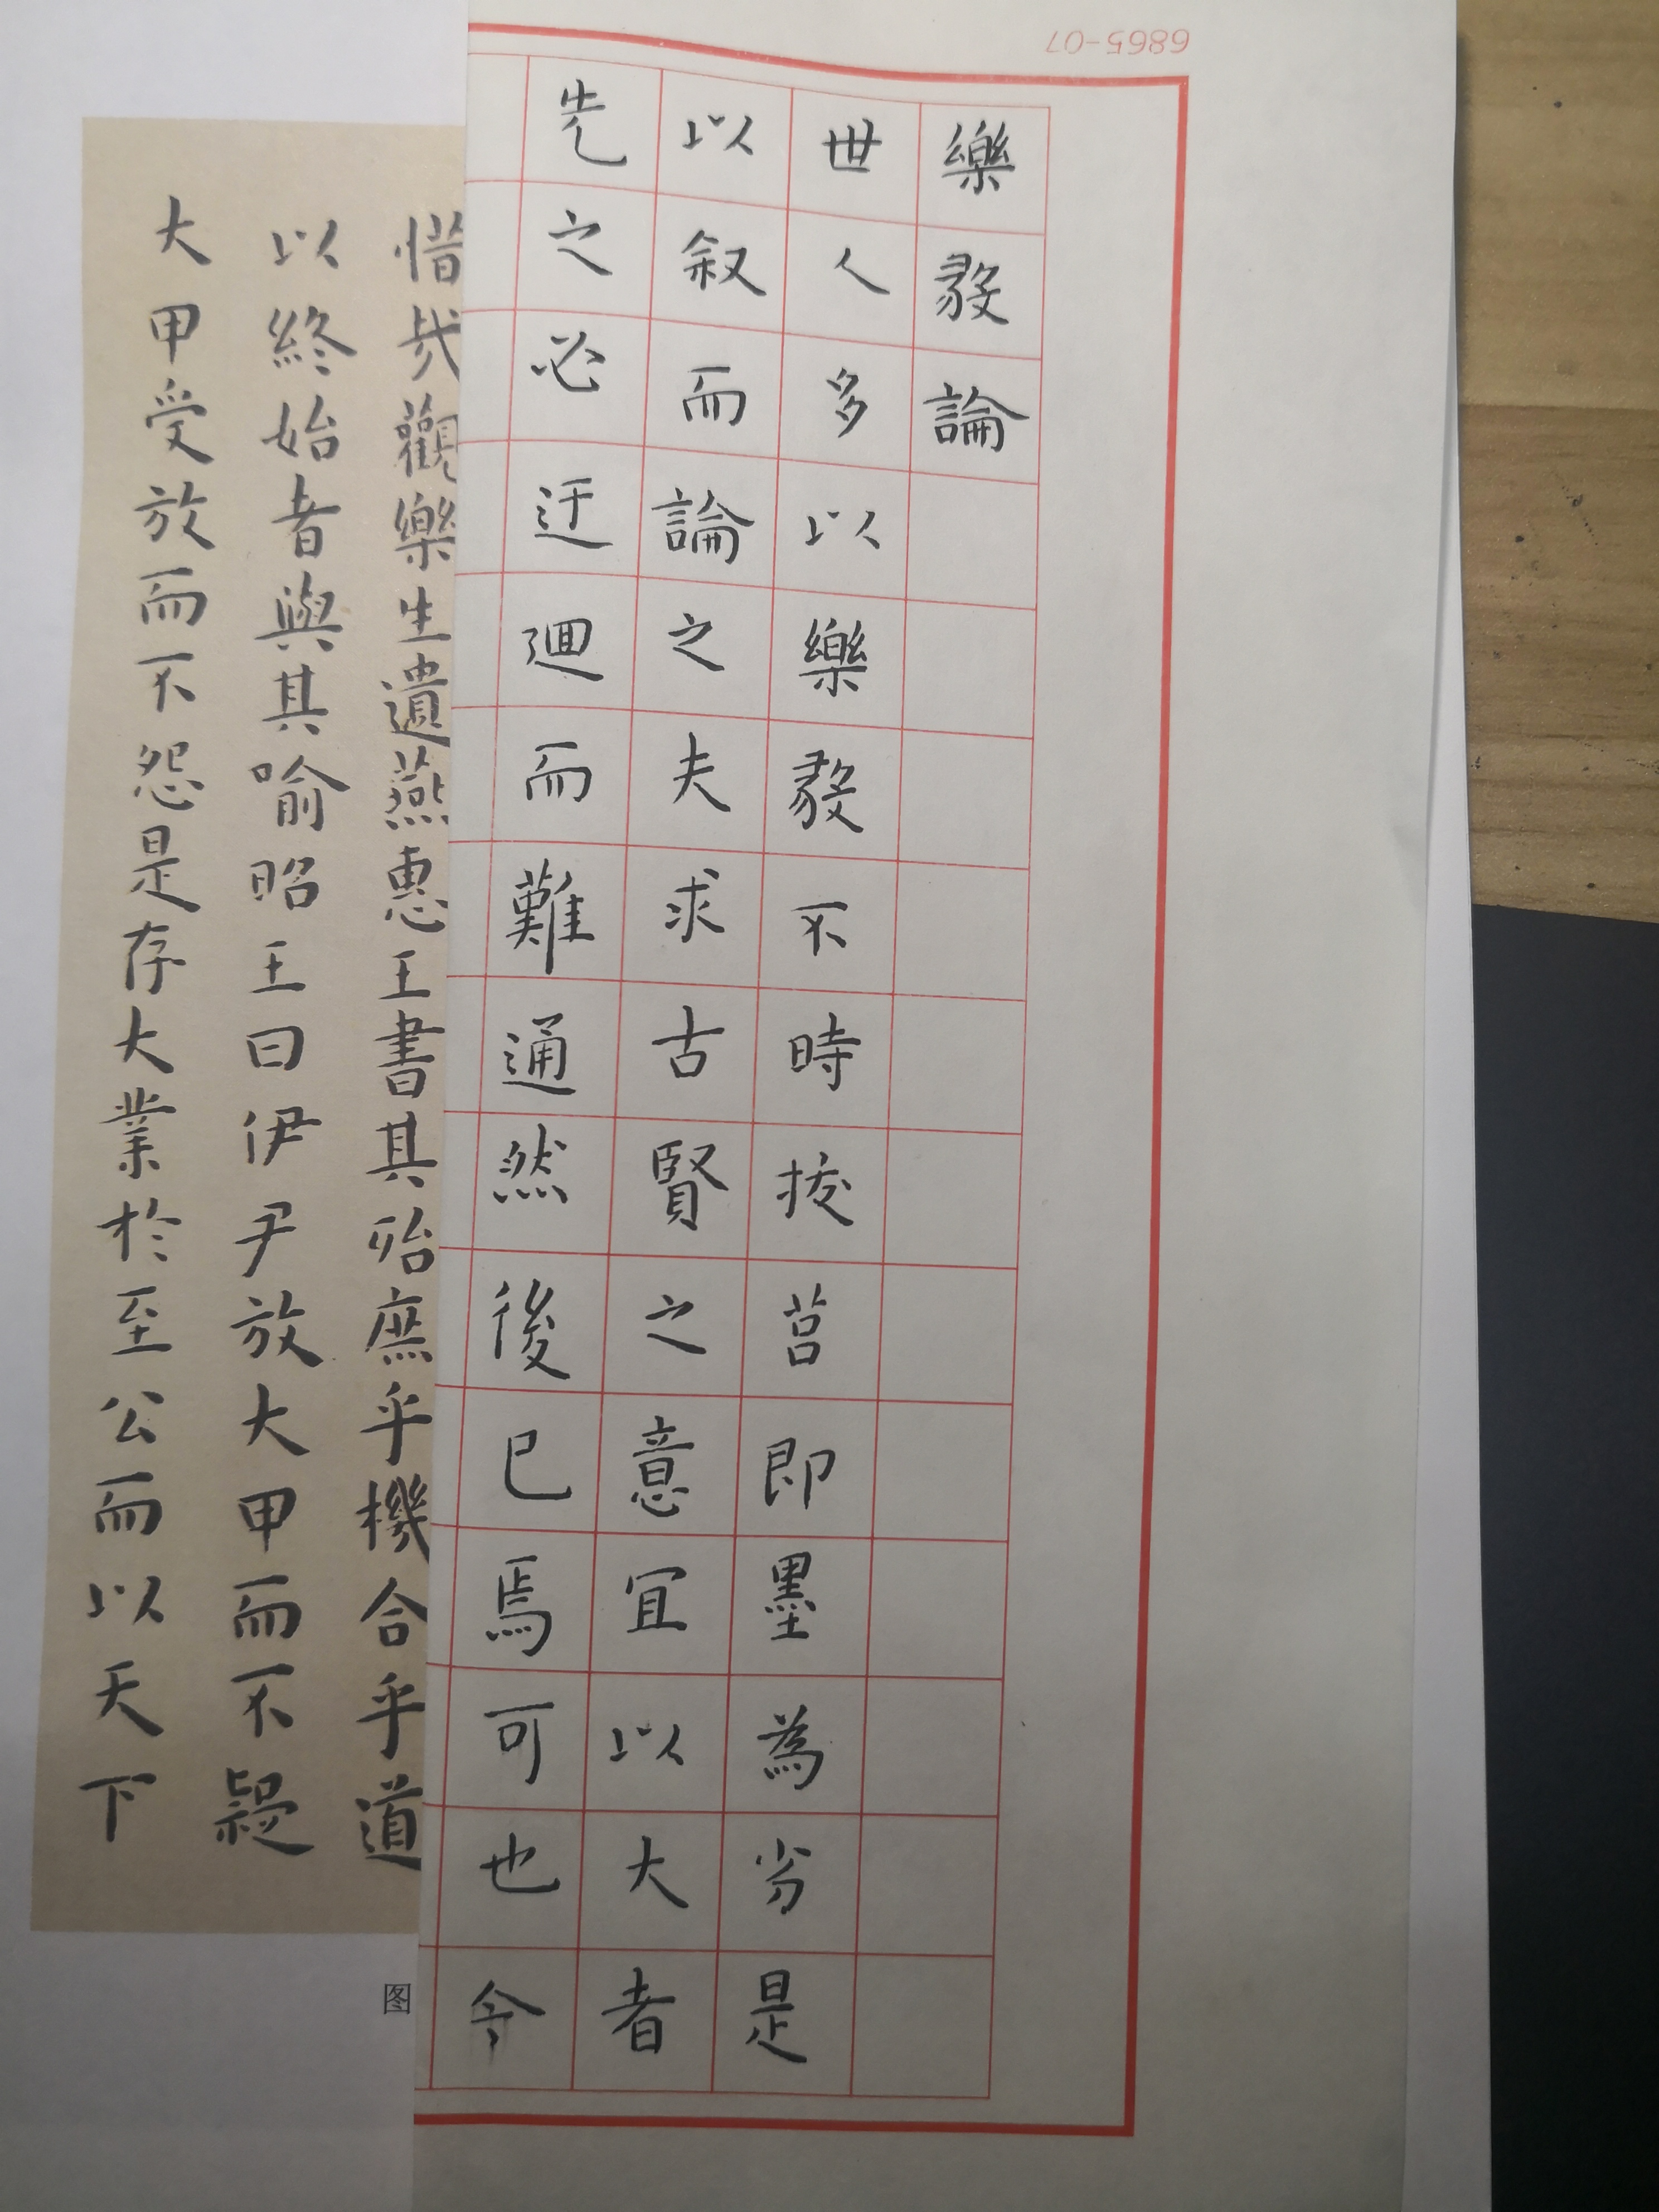 6865-07
樂毅論
世人多以樂毅不時拔莒即墨為劣是
以叙而論之夫求古賢之意宜以大者
先之必迂迴而難通然後已焉可也今
惜哉觀樂生遺燕惠王書其殆庶乎機合乎道
以終始者與其喻昭王曰伊尹放大甲而不疑
大甲受放而不怨是存大業於至公而以天下
图